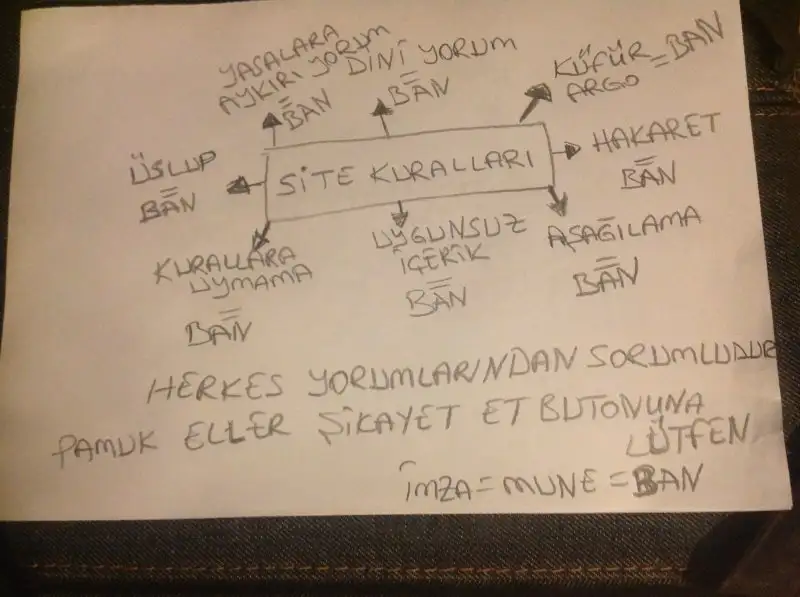 YASALARA
AYKIRI YORUM
=
BAN
DİNİ YORUM
=
BAN
KÜFÜR
ARGO = BAN
ÜSLUP
=
BAN
SİTE KURALLARI
HAKARET
=
BAN
KURALLARA
UYMAMA
=
BAN
UYGUNSUZ
İÇERİK
=
BAN
AŞAĞILAMA
=
BAN
HERKES YORUMLARINDAN SORUMLUDUR
PAMUK ELLER ŞİKAYET ET BUTONUNA
LÜTFEN
İMZA = MUNE = BAN